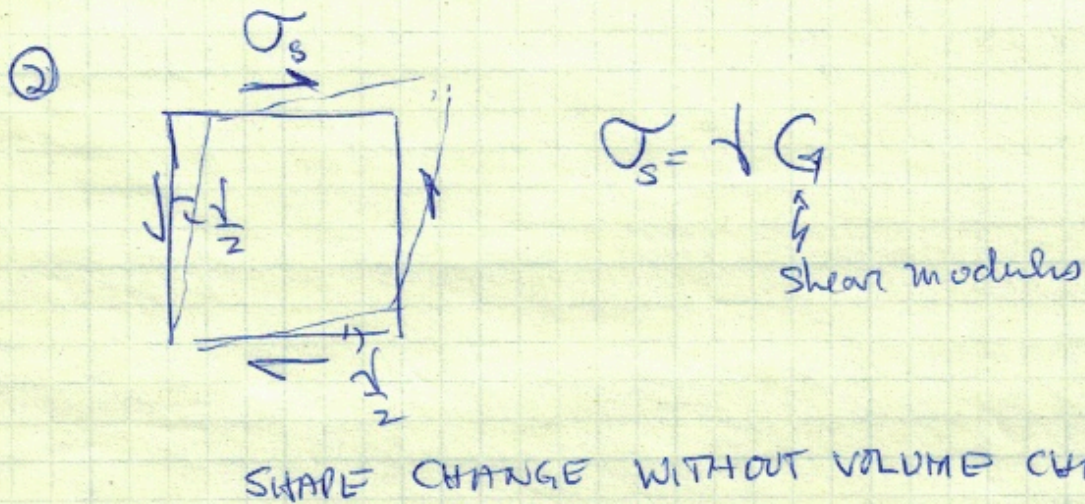 ②
σs
σs = γ G
γ/2
shear modulus
γ/2
SHAPE CHANGE WITHOUT VOLUME CHA